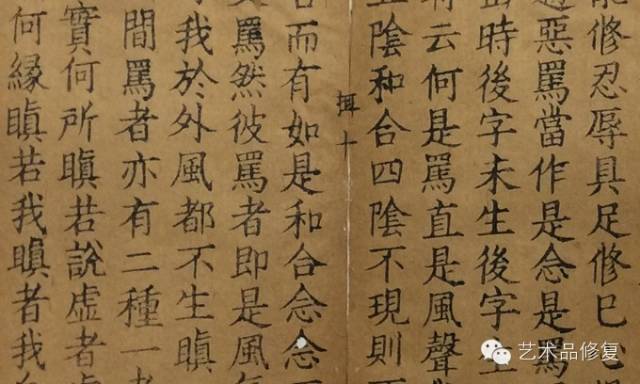 能修忍辱具足修已心
遇惡罵當作是念是罵
時後字未生後字生
有云何是罵直是風聲
陰和合四陰不現則
十
而有如是和合念念
罵然彼罵者即是風
我於外風都不生瞋
間罵者亦有二種一者
實何所瞋若說虛者
何緣瞋若我瞋者我
艺术品修复